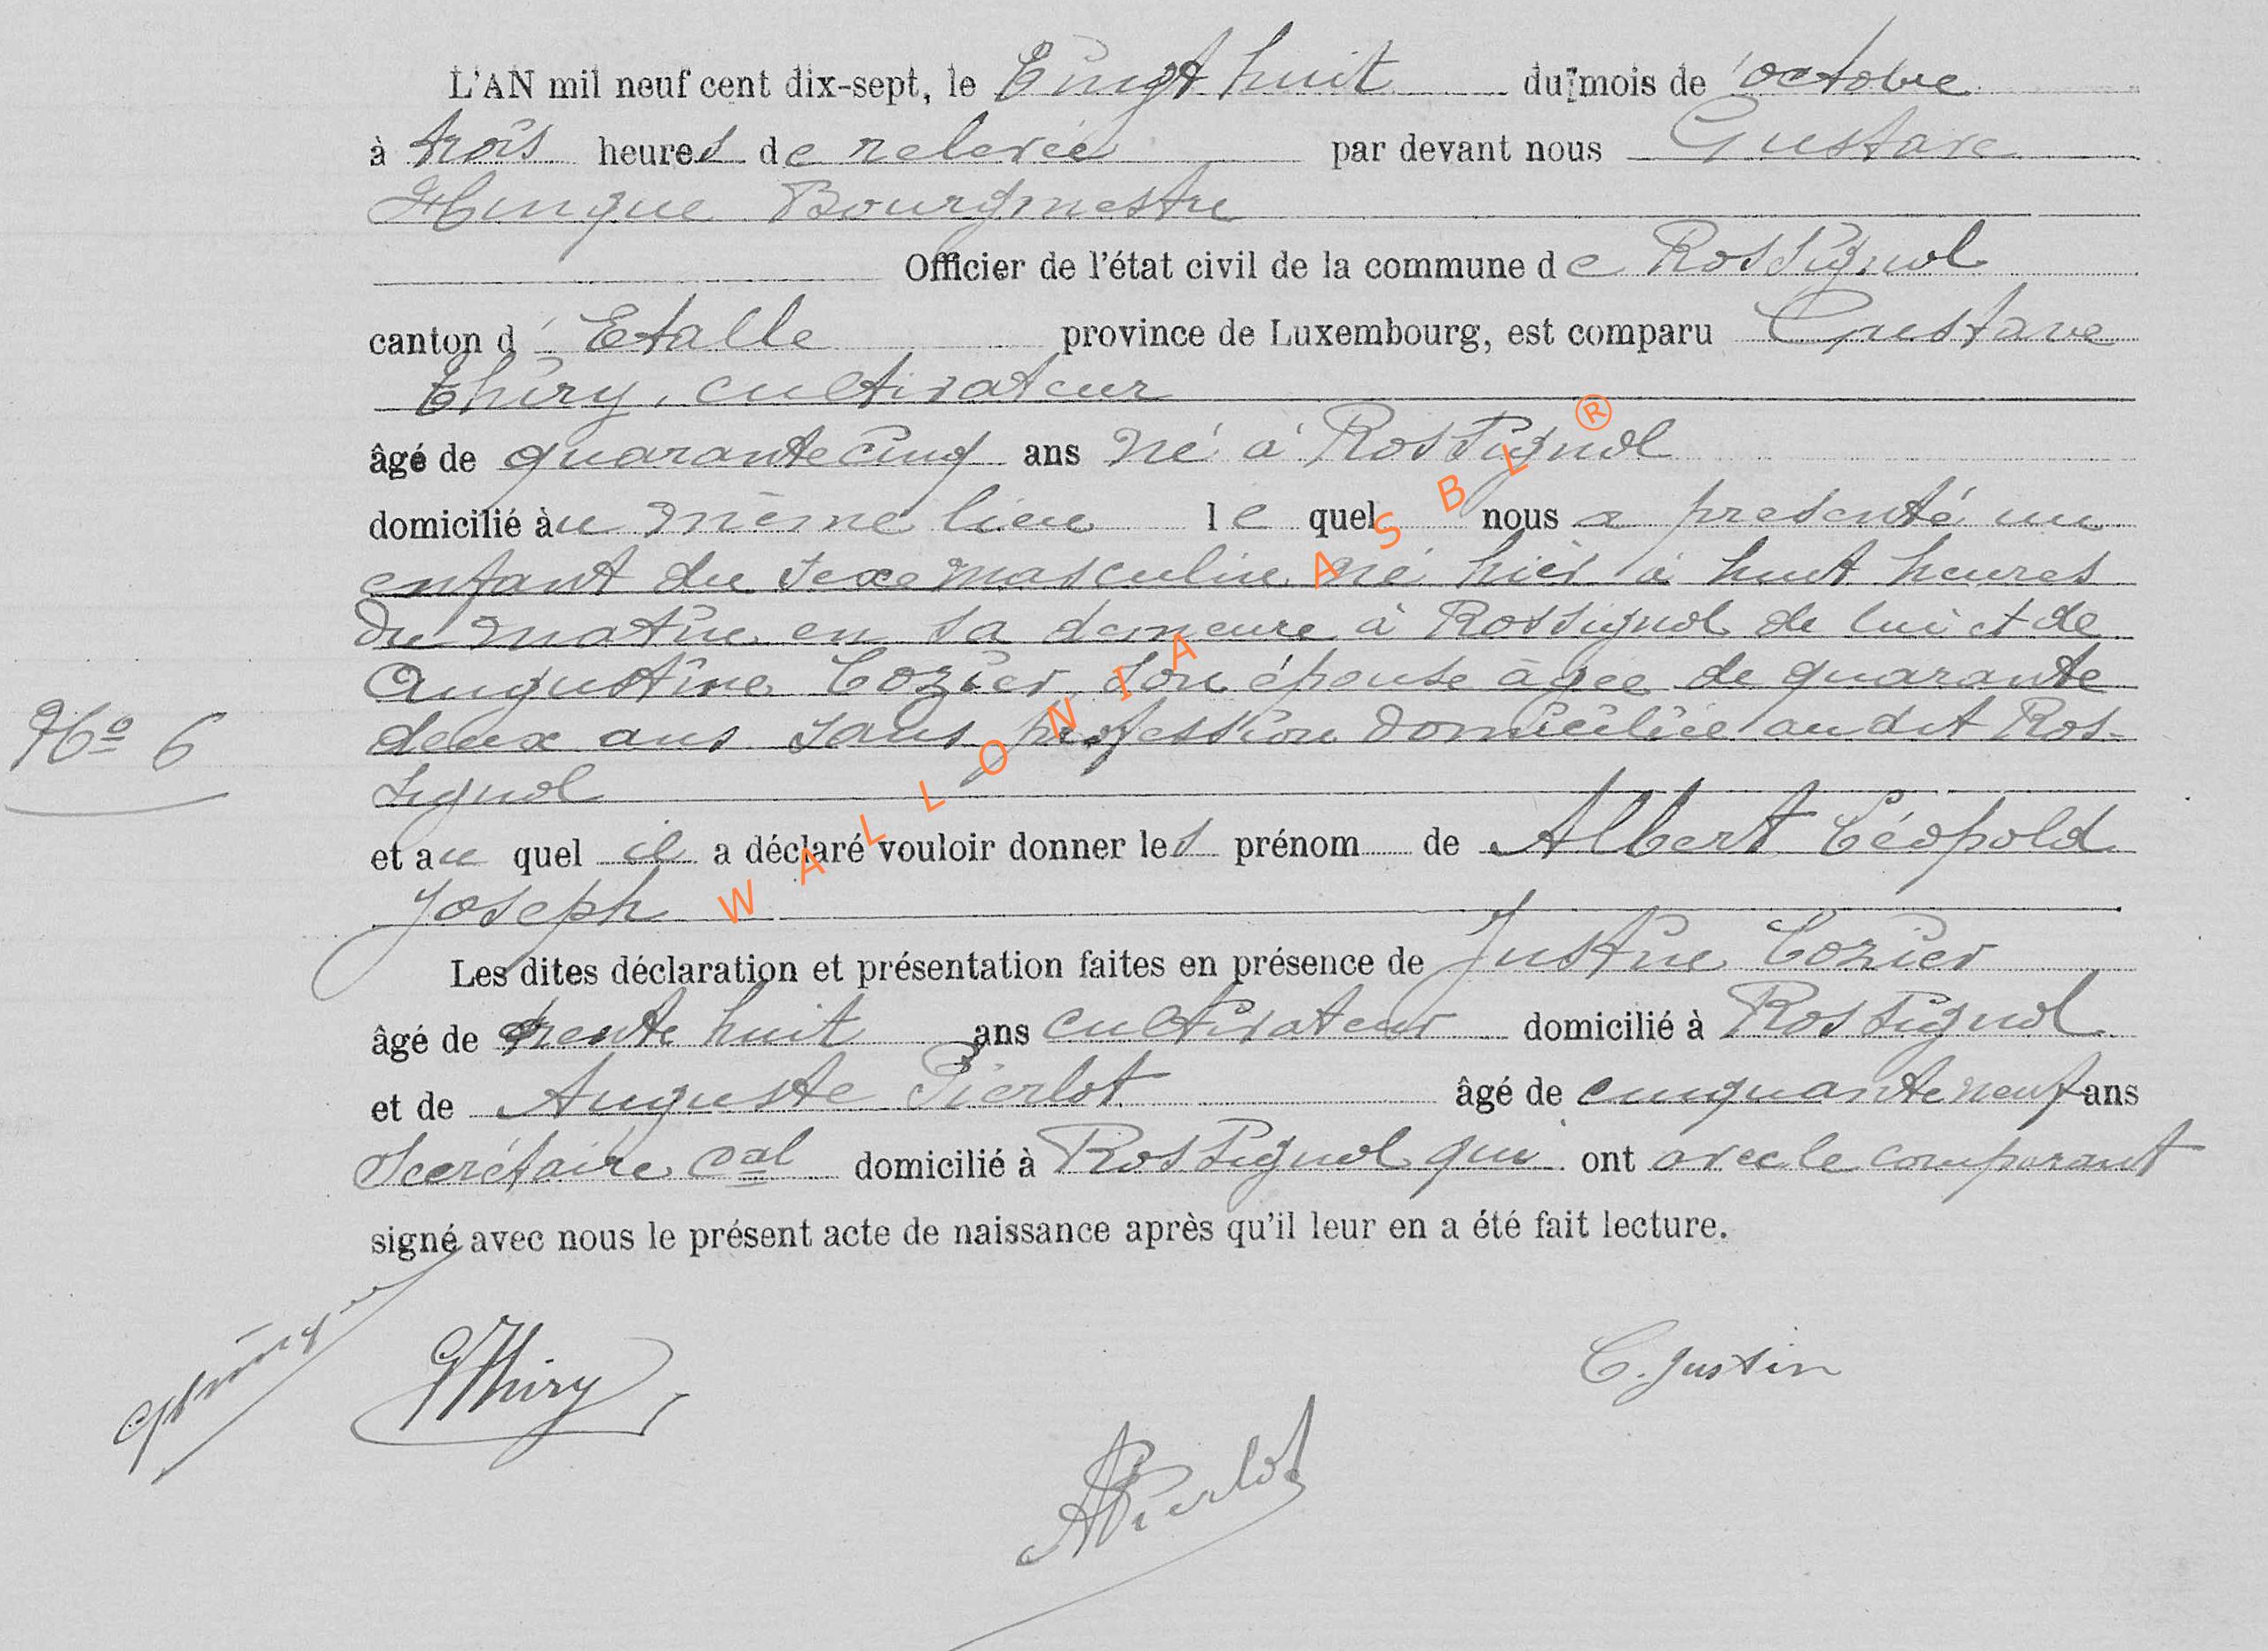 L'AN mil neuf cent dix-sept, le Vingt huit du mois de octobre
à trois heures de relevée par devant nous Gustave
Hinque Bourgmestre
Officier de l'état civil de la commune de Rossignol
canton d'Etalle province de Luxembourg, est comparu Gustave
Thiry, cultivateur
âgé de quarante cinq ans né à Rossignol
domicilié au même lieu lequel nous a presenté un
enfant du sexe masculin né hier à huit heures
du matin en sa demeure à Rossignol de lui et de
Augustine Cozier son épouse âgée de quarante
deux ans sans profession domiciliée au dit Ros-
signol
N° 6
et au quel il a déclaré vouloir donner les prénom de Albert Léopold
Joseph
Les dites déclaration et présentation faites en présence de Justin Cozier
âgé de trente huit ans cultivateur domicilié à Rossignol
et de Auguste Pierlot âgé de cinquante neuf ans
Secrétaire cal domicilié à Rossignol qui ont avec le comparant
signé avec nous le présent acte de naissance après qu'il leur en a été fait lecture.
GThiry
C. Justin
APierlot
WALLONIA ASBL ®